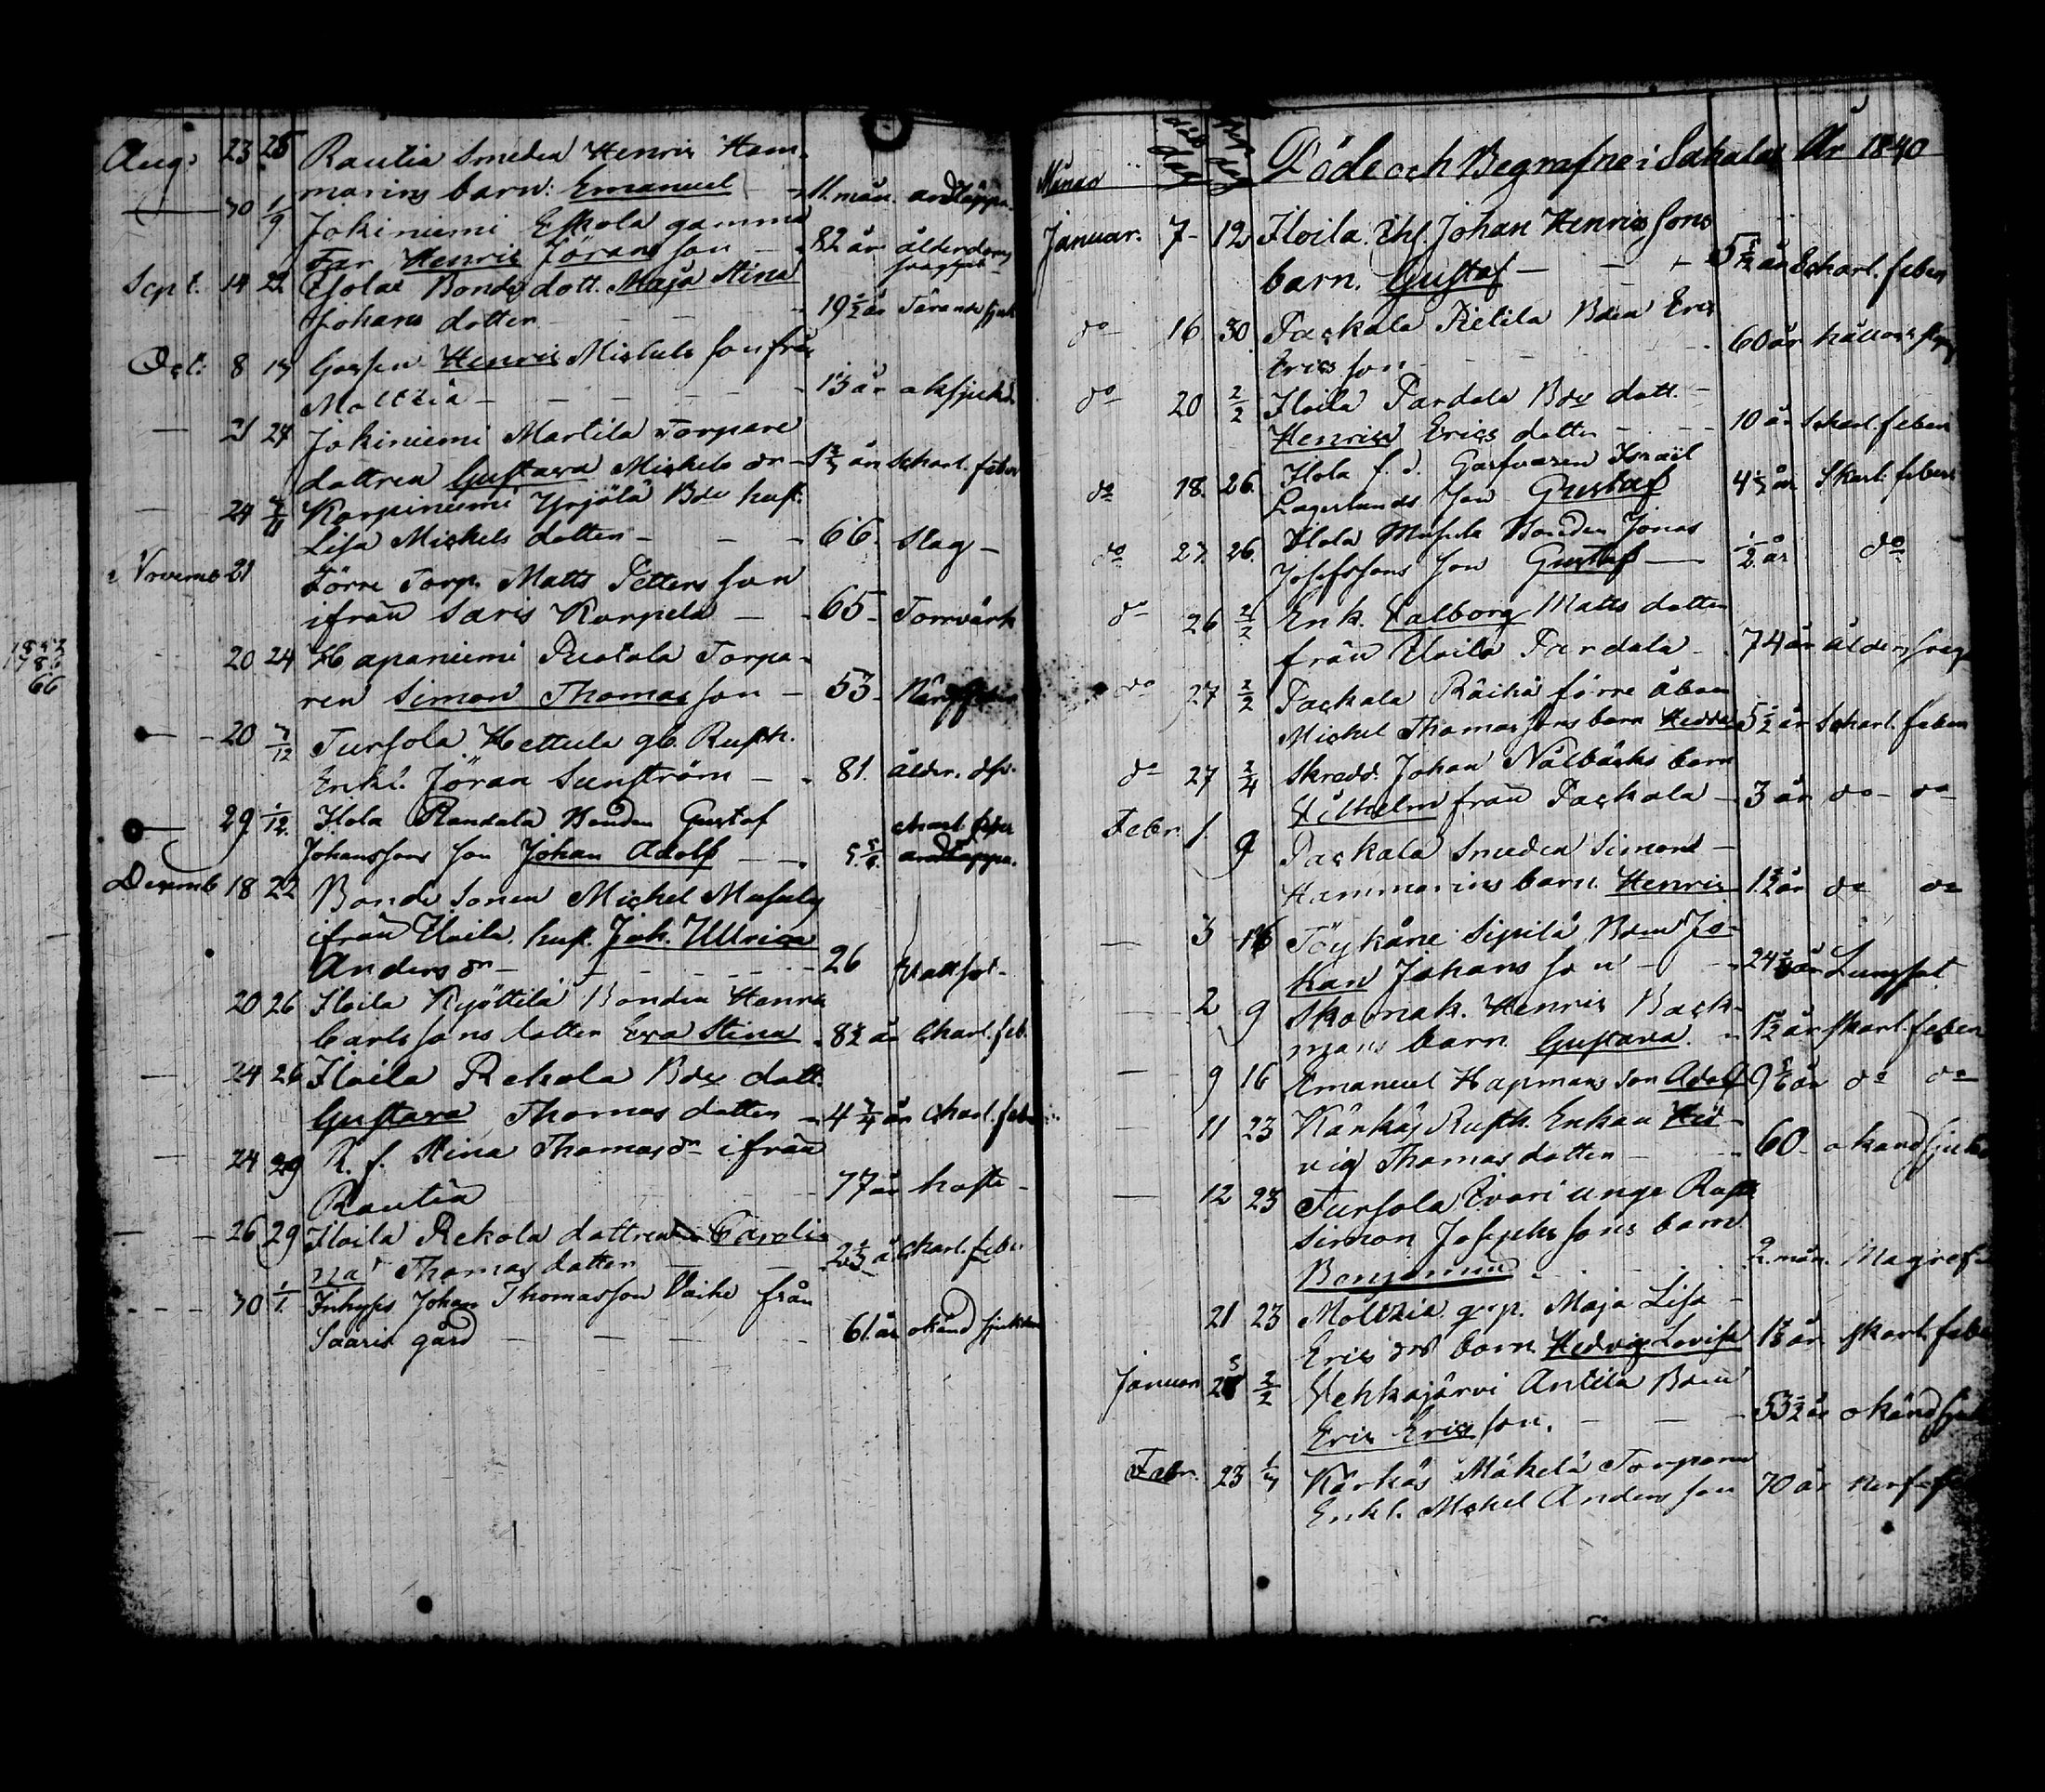 1852
1786
66
Aug: 23 25 Rautia Smeden Henric Ham-
marins barn: Emanuel - 11. mån. andtäppa.
30 1/9 Jokiniemi Eskola gamma
Far Henric Jöransson - 82 år ålderdoms
Sept. 14 22 Bonde dott. Maja Stina
Johans dotter - 19 1/2 år Tärande sjuk
Oct: 8 13 Gossen Henric Michels son från
Moltzia - 13 år
21 24 Jokiniemi Martila Torpare
dottren Gustava Michels dr - Scharl. feber
24 Korpiniemi Yrjölä Bde hust.
Lisa Michels dotter - 66. Slag -
Novemb 21 Förre Torp. Matts Petters son
ifrån Saris Korpela - 65 - Torrvärk
20 24 Hapaniemi Torpa-
ren Simon Thomas son - 53 -
20 7/12 Tursola Hettula gb. Rusth.
Enkl. Jöran Sunström - 81. ålder. ds.
29 1/12. Ilola Randala Bonden Gustaf
scharl. feber
Johanssons son Johan Adolf - 5 5/6. andtäppa.
Decemb 18 22 Bonde Sonen Michel
ifrån Uoila. hust. Joh. Ullrica
Anders dr - 26
20 26 Iloila Kyöttilä Bonden Henric
Carlssons dotter Eva Stina - 8 1/2 år Scharl. feb.
24 26 Iloila Rekola Bde dott.
Gustava Thomas dotter - 4 3/4 år Scharl. feber
24 29 R. f. Stina Thomas dr ifrån
Rautia 77 år hosta -
26 29 Iloila Rekola dottren Caroli-
na Thomas dotter scharl. feber
30 1/1. Inhyss Johan Thomasson från
Saaris gård - 61. år okänd sjukdom
Månad död dag begr dag Döde och Begrafne i Sahalax År 1840
Januar. 7 - 12 Iloila Johan Henrics sons
barn. Gustaf - 5 1/2 år Scharl. feber
do 16 30. Packala Pietila Bden Eric
Ericsson - 60 år
do 20 2/2 Iloila Pardala Bde dott. -
Henrica Erics dotter - 10 år Scharl. feber
do 18. 26. Ilola f. d. Israël
Lagerlunds son Gustaf 4 1/2 år Skarl. feber
do 27. 26. Ilola Bonden Jonas
Josefssons son Gustaf - 1/2 år do
do 26 2/2 Enk. Valborg Matts dotter
från Uoila Pardala - 74 år
do 27 2/2 Packala Räihä förre åbon
Michel Thomas sons barn Hedda 5 1/2 år Scharl. feber
do 27 2/4 Skredd. Johan Nålbäcks barn
Vilhelm från Packala - 3 år do - do
Febr. 1. 9 Packala Smeden Simons -
Hammarins barn. Henric 1 1/2 år do do
3 16 Töykäne Sipilä Bden Jo-
han Johans son - Lungsot
2 9 Skomak. Henric Back-
mans barn. Gustava. - 1 1/2 år skarl. feber
9 16 Emanuel Hapmans son Adolf 9 5/6 år do do
11 23 Kärkäs Rusth. Enkan Hed-
vig Thomas dotter - 60 - okänd sjukd
12 23 Tursola unge Rusth
Simon Josephs sons barn
Benjamin - 2. mån.
21 23 Moltzia Maja Lisa -
Erics drs barn Hedvig Lovisa skarl. feber
Januar 2/2 Vehkajärvi Antila Bden
Eric Ericsson. - 53 1/2 år okänd sjukd
Febr. 23 Kärkäs Mäkelä Torparen
Enkl. Michel Andersson 70 år